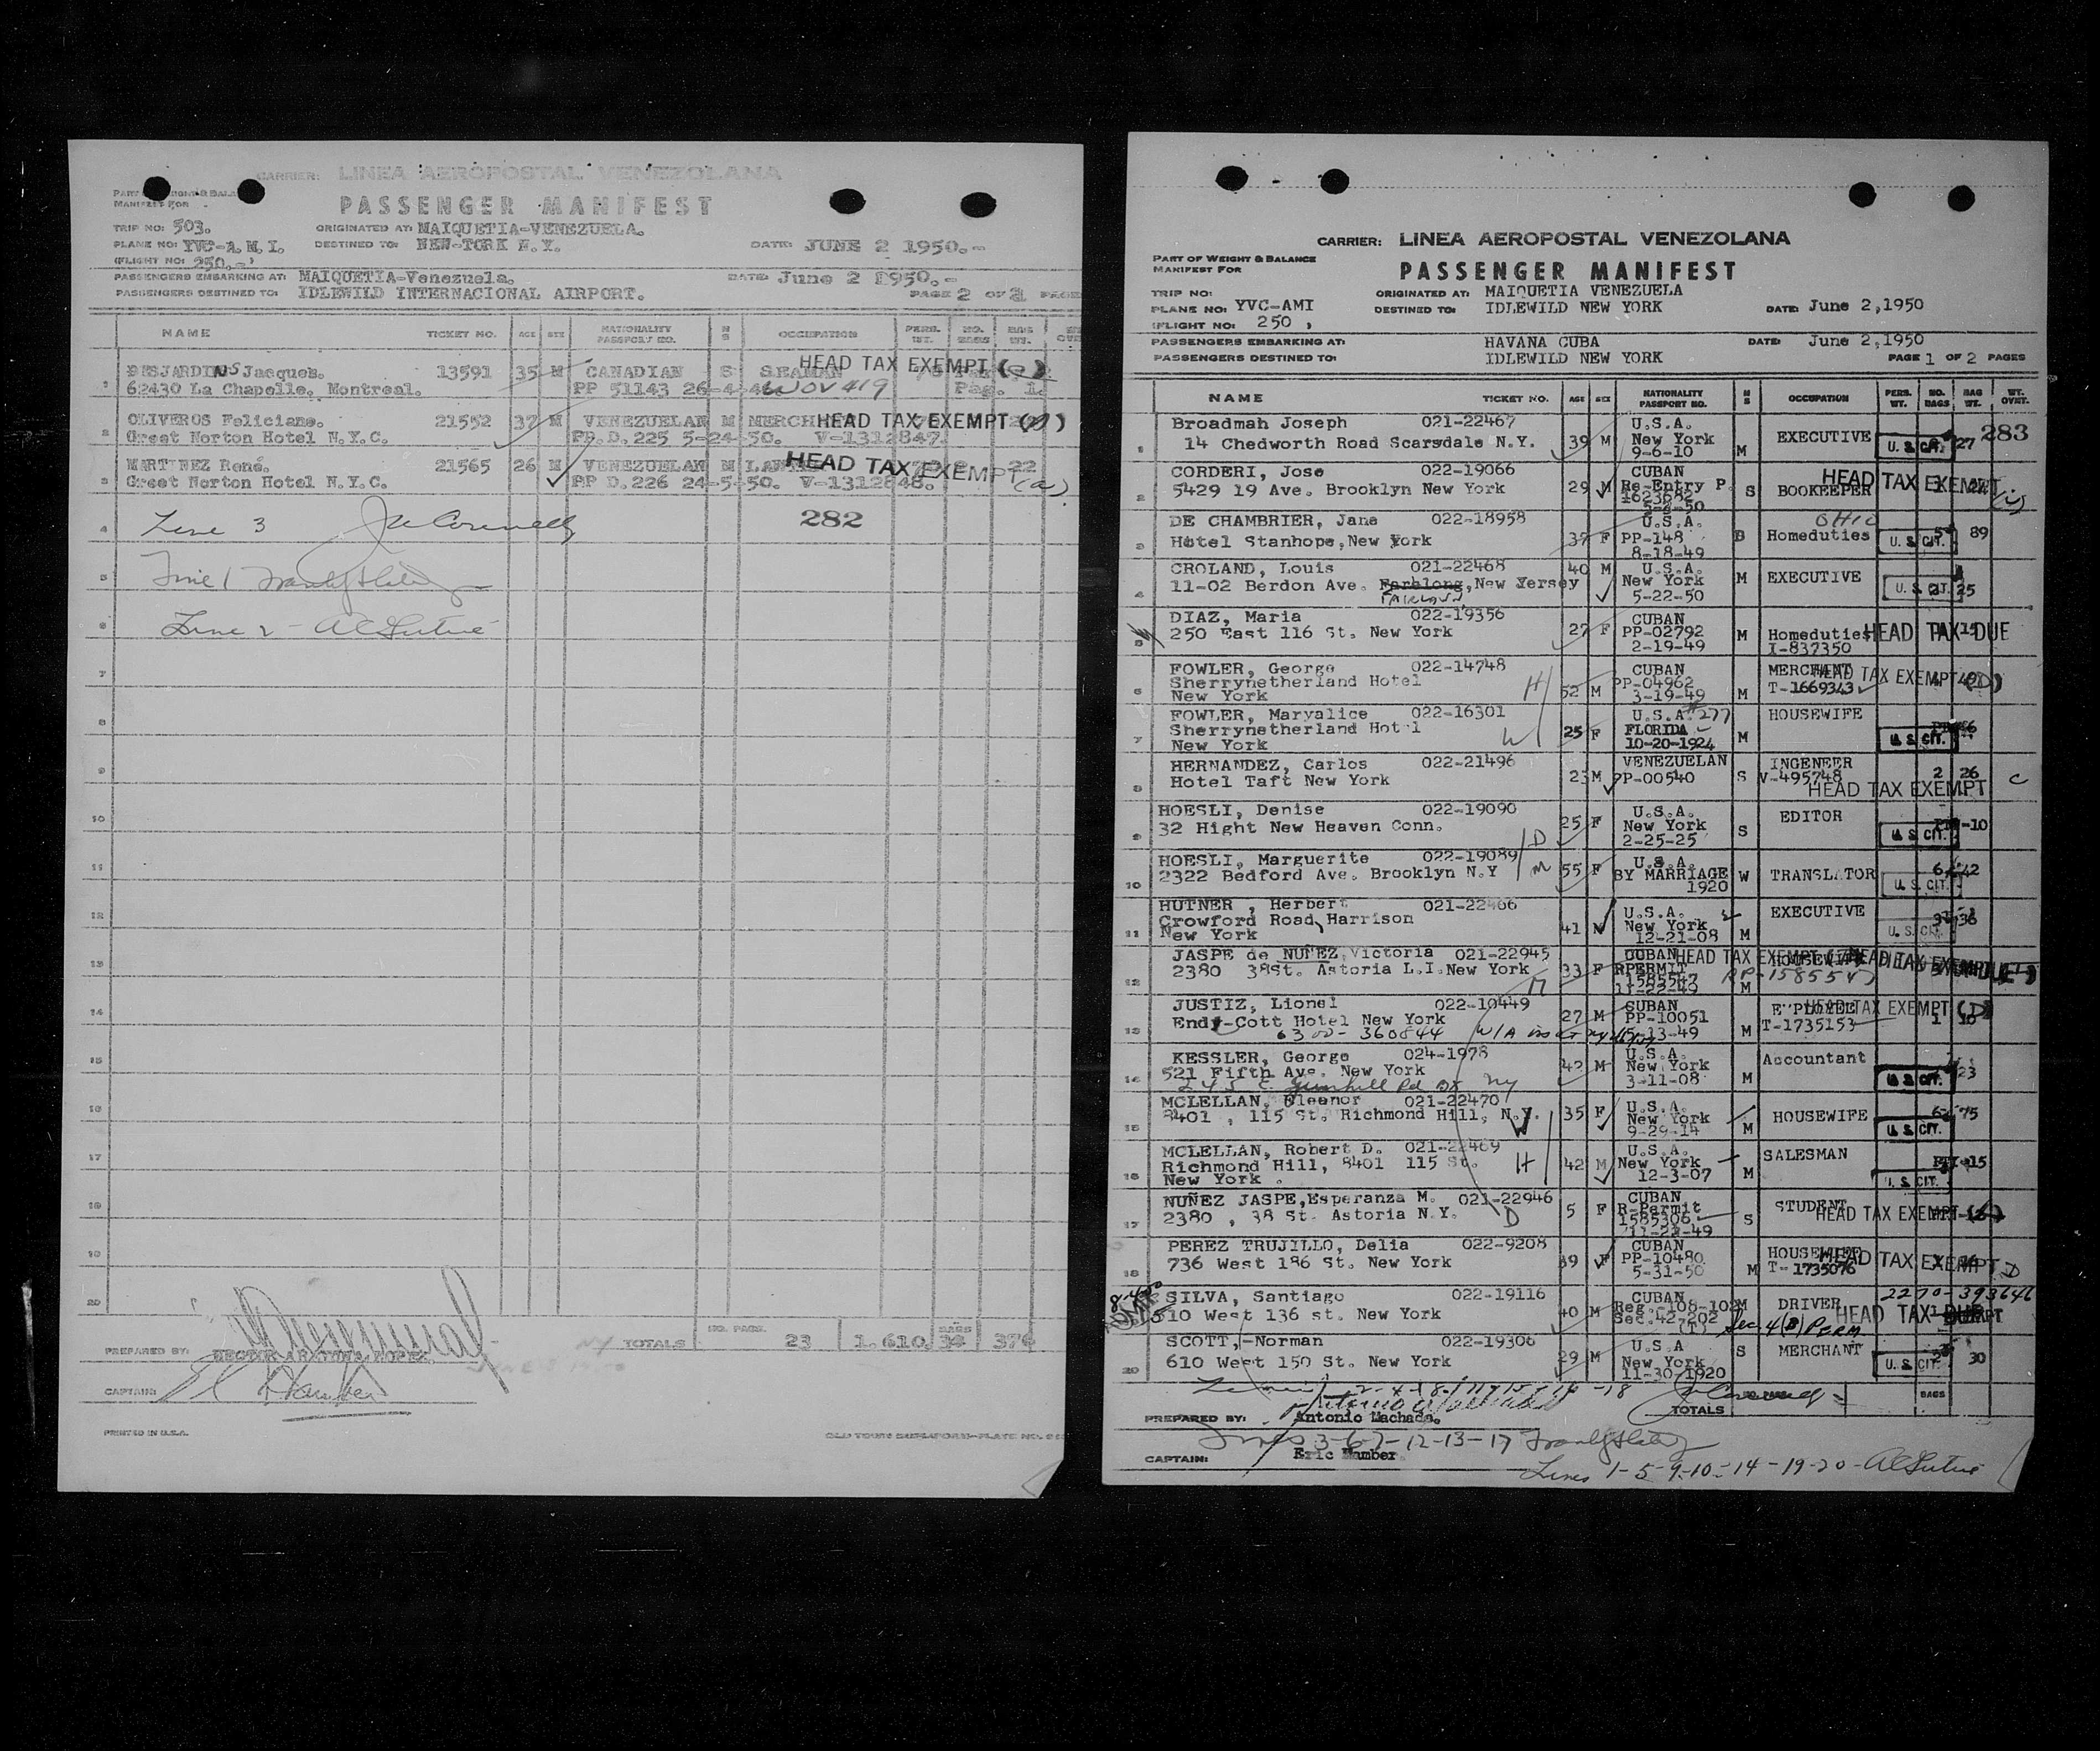 CARRIER: LINEA AEROPOSTAL VENEZOLANA
MANIFEST FOR
PASSENGER MANIFEST
TRIP NO: 503.
ORIGINATED AT: MAIQUETIA-VENEZUELA.
PLANE NO: YVC-A.M.I.
DESTINED TO: NEW-YORK N.Y.
DATE: JUNE 2 1950.-
(FLIGHT NO: 250.-)
PASSENGERS EMBARKING AT: MAIQUETIA-Venezuela.
DATE: June 2 1950.-
PASSENGERS DESTINED TO: IDLEWILD INTERNACIONAL AIRPORT.
PAGE 2 OF 2
NAME TICKET NO. AGE SEX NATIONALITY PASSPORT NO. M S OCCUPATION PERS. WT. NO. BAGS BAG WT.
DESJARDINS Jacques. 13591 35 M CANADIAN S SEAMAN HEAD TAX EXEMPT
1 62430 La Chapelle. Montreal. PP 51143 26-4-46 Pag. 1.
OLIVEROS Feliciano. 21552 37 M VENEZUELAN M MERCH HEAD TAX EXEMPT
2 Great Norton Hotel N.Y.C. PP.D.225 5-24-50. V-1312847.
MARTINEZ René. 21565 26 M VENEZUELAN M HEAD TAX EXEMPT 22
3 Great Norton Hotel N.Y.C. PP D.226 24-5-50. V-1312848. (a)
4 Line 3 282
5 Line 1
6 Line 2 -
7
8
9
10
11
12
13
14
15
16
17
18
19
20
TOTALS NO. PASS. 23 1.610 BAGS 34 376
PREPARED BY:
CAPTAIN:
PRINTED IN U.S.A.
CARRIER: LINEA AEROPOSTAL VENEZOLANA
PART OF WEIGHT & BALANCE
MANIFEST FOR
PASSENGER MANIFEST
TRIP NO:
ORIGINATED AT: MAIQUETIA VENEZUELA
PLANE NO: YVC-AMI
DESTINED TO: IDLEWILD NEW YORK
DATE: June 2,1950
(FLIGHT NO: 250 )
PASSENGERS EMBARKING AT: HAVANA CUBA
DATE: June 2,1950
PASSENGERS DESTINED TO: IDLEWILD NEW YORK
PAGE 1 OF 2 PAGES
NAME TICKET NO. AGE SEX NATIONALITY PASSPORT NO. M S OCCUPATION PERS. WT. NO. BAGS BAG WT. WT. OVNT.
Broadmah Joseph 021-22467 U.S.A. 283
1 14 Chedworth Road Scarsdale N.Y. 39 M New York EXECUTIVE U.S. CIT. 27
9-6-10 M
CORDERI, Jose 022-19066 CUBAN HEAD TAX EXEMPT
2 5429 19 Ave. Brooklyn New York 29 M Re-Entry P. S BOOKKEEPER
1623682
5-2-50
DE CHAMBRIER, Jane 022-18958 U.S.A. OHIO
3 Hotel Stanhope,New York 37 F PP-148 B Homeduties U.S. CIT. 5 89
8-18-49
CROLAND, Louis 021-22468 40 M U.S.A.
4 11-02 Berdon Ave. Farelong,New Yersey New York M EXECUTIVE U.S. CIT. 25
FAIRLAWN 5-22-50
DIAZ, Maria 022-19356 CUBAN
5 250 East 116 St. New York 27 F PP-02792 M Homeduties HEAD TAX DUE
2-19-49 I-837350
FOWLER, George 022-14748 CUBAN MERCHANT
6 Sherrynetherland Hotel H PP-04962 HEAD TAX EXEMPT (D)
New York 52 M 3-19-49 M T-1669343
FOWLER, Maryalice 022-16301 U.S.A. #277 HOUSEWIFE
7 Sherrynetherland Hotel W 25 F FLORIDA
New York 10-20-1924 M U.S. CIT.
HERNANDEZ, Carlos 022-21496 VENEZUELAN INGENEER
8 Hotel Taft New York 23 M PP-00540 S V-495748 2 26 C
HEAD TAX EXEMPT
HOESLI, Denise 022-19090 U.S.A. EDITOR
9 32 Hight New Heaven Conn. D 25 F New York S U.S. CIT. -10
2-25-25
HOESLI, Marguerite 022-19089 U.S.A.
10 2322 Bedford Ave. Brooklyn N.Y M 55 F BY MARRIAGE W TRANSLATOR 6 42
1920 U.S. CIT.
HUTNER , Herbert 021-22466 U.S.A. EXECUTIVE
11 Crowford Road, Harrison 41 New York 36
New York 12-21-08 M U.S. CIT.
JASPE de NUÑEZ,Victoria 021-22945 CUBAN HEAD TAX EXEMPT
12 2380 38St. Astoria L.I.New York 33 F RPERMIT RP-1585547
M 1585547
11-22-49 M
JUSTIZ, Lionel 022-10449 CUBAN HEAD TAX EXEMPT (D)
13 Endy-Cott Hotel New York 27 M PP-10051 T-1735153 1 10
6300-360844 5-13-49 M
KESSLER, George 024-1978 U.S.A. Accountant
14 521 Fifth Ave. New York 42 M New York 23
245 E. Gunhill Rd BX NY 3-11-08 M U.S. CIT.
MCLELLAN, Eleanor 021-22470 U.S.A.
15 8401 , 115 St. Richmond Hill, N.Y. W 35 F New York HOUSEWIFE 75
9-29-14 M U.S. CIT.
MCLELLAN, Robert D. 021-22469 U.S.A. SALESMAN
16 Richmond Hill, 8401 115 St. H 42 M New York -15
New York . 12-3-07 M U.S. CIT.
NUÑEZ JASPE,Esperanza M. 021-22946 CUBAN STUDENT
17 2380 , 38 St. Astoria N.Y. D 5 F R-Permit S HEAD TAX EXEMPT
1585306
11-22-49
PEREZ TRUJILLO, Delia 022-9208 CUBAN HOUSEWIFE
18 736 West 186 St. New York 39 F PP-10480 HEAD TAX EXEMPT D
5-31-50 M T-1735076
SILVA, Santiago 022-19116 CUBAN 2270-393646
510 West 136 st. New York 40 M Reg. -108-102 M DRIVER HEAD TAX DUE
Sec.42-202 (T) Sec. 4(B) PERM
SCOTT,-Norman 022-19306 U.S.A S MERCHANT
20 610 West 150 St. New York 29 M New York U.S. CIT. 30
11-30-1920
TOTALS BAGS
PREPARED BY: Antonio Machado.
Lines 3-6-7-12-13-17
CAPTAIN: Eric Humber
Lines 1-5-9-10-14-19-20-